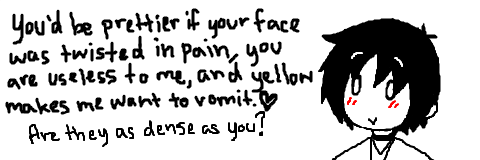 You'd be prettier if your face
was twisted in pain, you
are useless to me, and yellow
makes me want to vomit.♥
Are they as dense as you?